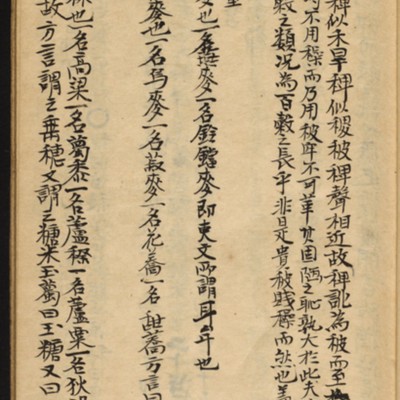 稗似禾旱稗似稷被稗聲相近故稗訛為被而至
不用穄而乃用被牟不可革其固陋之恥孰大於此夫
穀之類況為百穀之長乎非是貴被賤穄而然也盖
麥也一名雀麥一名鈴鐺麥即吏文所謂耳牟也
麥也一名烏麥一名荍麥一名花蕎一名甜蕎方言曰
也一名高粱一名蜀黍一名蘆穄一名蘆粟一名狄
故方言謂之垂穗又謂之糖米玉蜀曰玉糖又曰